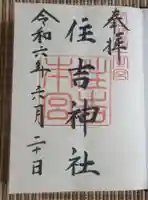 奉拝
住吉神社
令和六年六月二十日